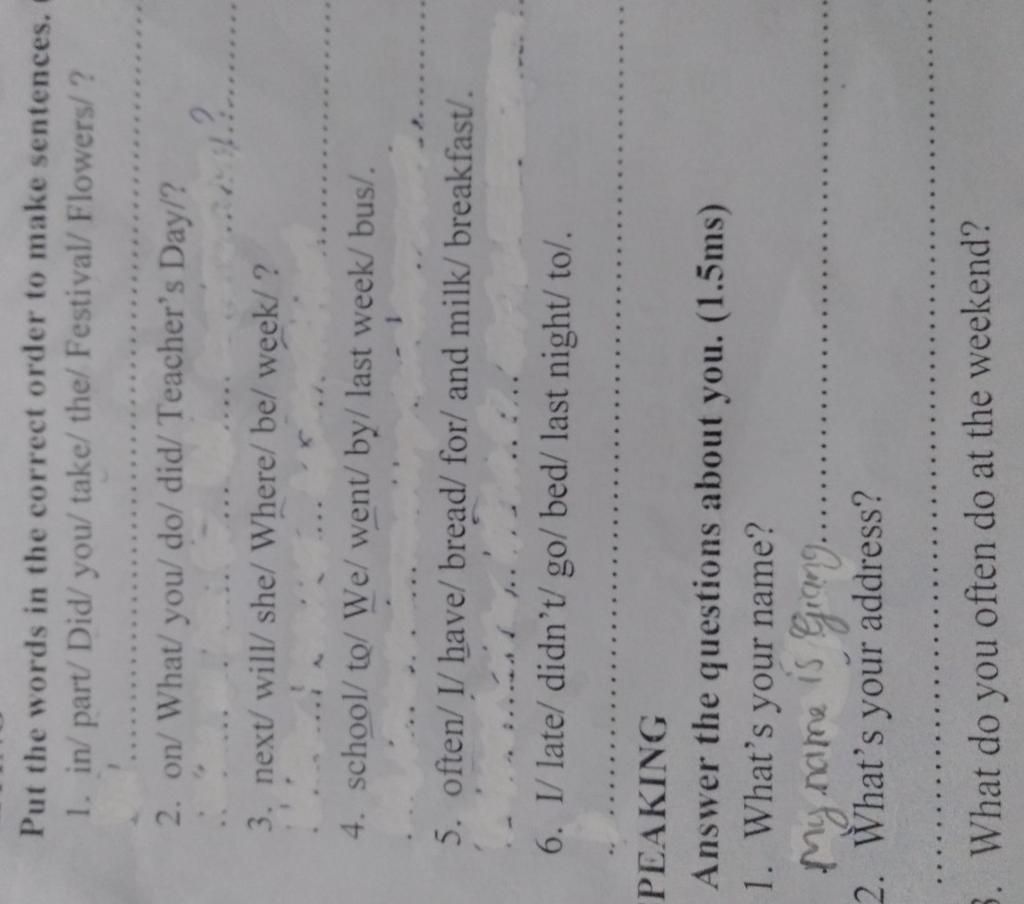 Put the words in the correct order to make sentences.
1. in/ part/ Did/ you/ take/ the/ Festival/ Flowers/ ?
2. on/ What/ you/ do/ did/ Teacher's Day/?
?
3. next/ will/ she/ Where/ be/ week/ ?
4. school/ to/ We/ went/ by/ last week/ bus/.
5. often/ I/ have/ bread/ for/ and milk/ breakfast/.
6. I/ late/ didn't/ go/ bed/ last night/ to/.
PEAKING
Answer the questions about you. (1.5ms)
1. What's your name?
My name is Giang
2. What's your address?
3. What do you often do at the weekend?